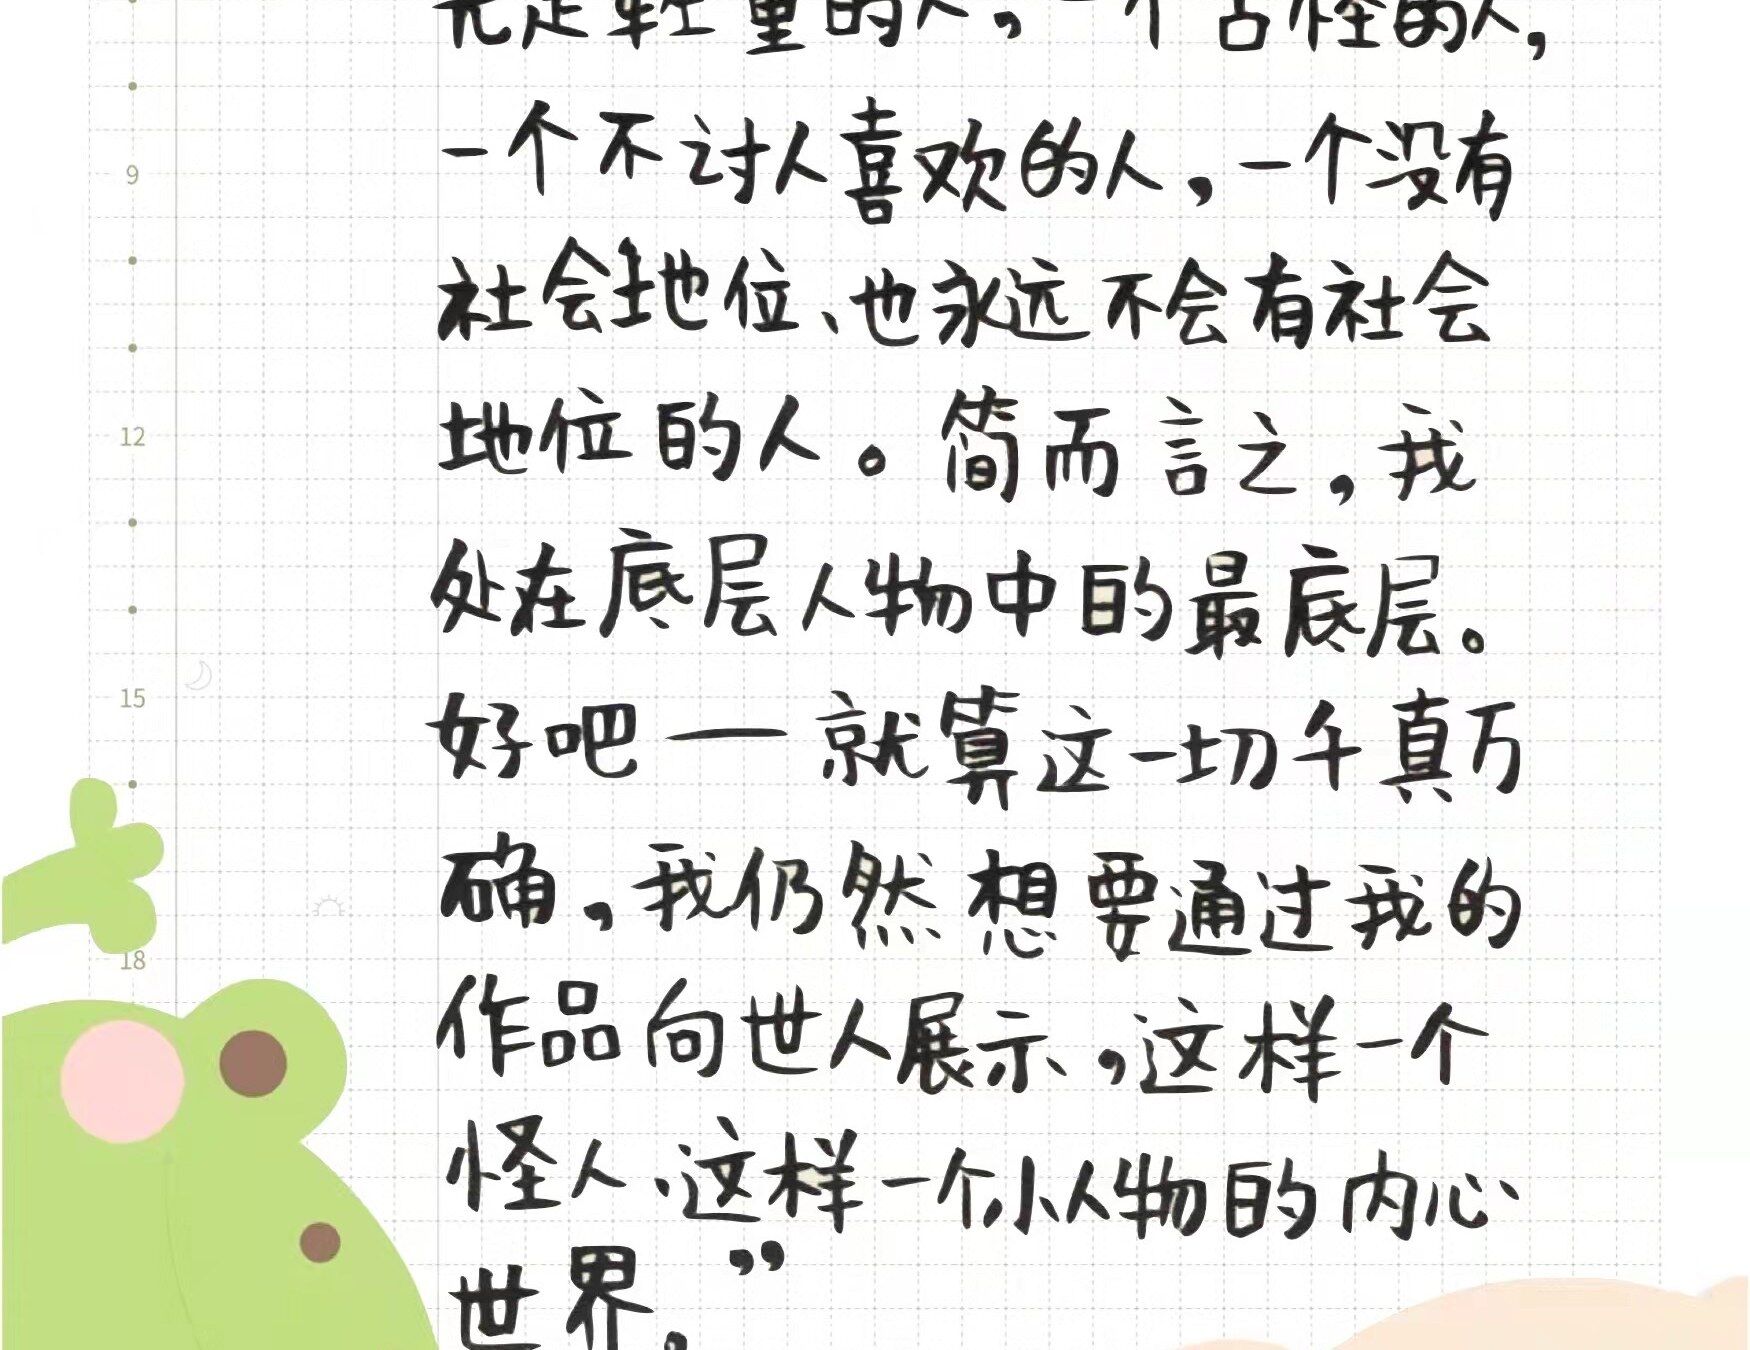 无足轻重的人，一个古怪的人，
一个不讨人喜欢的人，一个没有
社会地位、也永远不会有社会
地位的人。简而言之，我
处在底层人物中的最底层。
好吧——就算这一切千真万
确，我仍然想要通过我的
作品向世人展示，这样一个
怪人、这样一个小人物的内心
世界。”
9
12
15
18